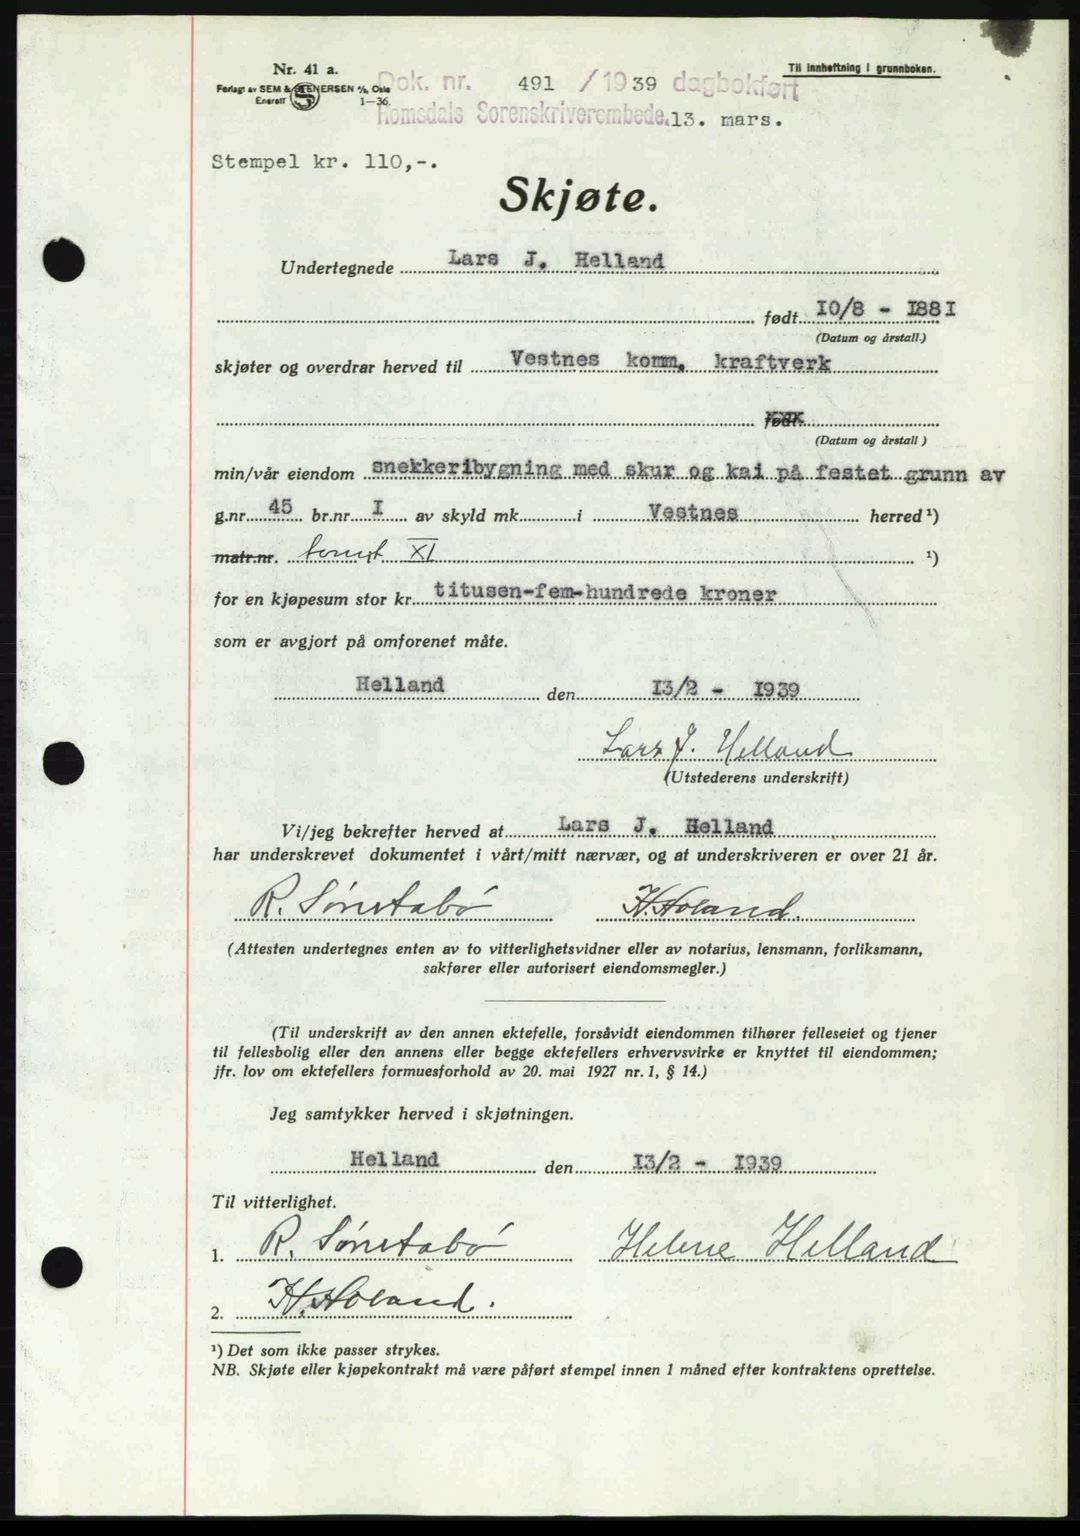 Nr. 41 a.
Til innheftning i grunnboken.
Forlagt av SEM & STENERSEN A/S, Oslo
Enerett 1—36.
Dok. nr. 491 / 1939 dagbokført
Romsdals Sorenskriverembede. 13. mars.
Stempel kr. 110,-.
Skjøte.
Undertegnede Lars J. Helland
født 10/8 - 1881
(Datum og årstall.)
skjøter og overdrar herved til Vestnes komm. kraftverk
født
(Datum og årstall)
min/vår eiendom snekkeribygning med skur og kai på festet grunn av
g.nr. 45 br.nr. I av skyld mk. i Vestnes herred ¹)
matr.nr. tomt XI ¹)
for en kjøpesum stor kr. titusen-fem-hundrede kroner
som er avgjort på omforenet måte.
Helland den 13/2 - 1939
Lars J. Helland
(Utstederens underskrift)
Vi/jeg bekrefter herved at Lars J. Helland
har underskrevet dokumentet i vårt/mitt nærvær, og at underskriveren er over 21 år.
R. Sønstabø H. Holand.
(Attesten undertegnes enten av to vitterlighetsvidner eller av notarius, lensmann, forliksmann,
sakfører eller autorisert eiendomsmegler.)
(Til underskrift av den annen ektefelle, forsåvidt eiendommen tilhører felleseiet og tjener
til fellesbolig eller den annens eller begge ektefellers erhvervsvirke er knyttet til eiendommen;
jfr. lov om ektefellers formuesforhold av 20. mai 1927 nr. 1, § 14.)
Jeg samtykker herved i skjøtningen.
Helland den 13/2 - 1939
Til vitterlighet.
1. R. Sønstabø Helene Helland
2. H. Holand.
¹) Det som ikke passer strykes.
NB. Skjøte eller kjøpekontrakt må være påført stempel innen 1 måned efter kontraktens oprettelse.